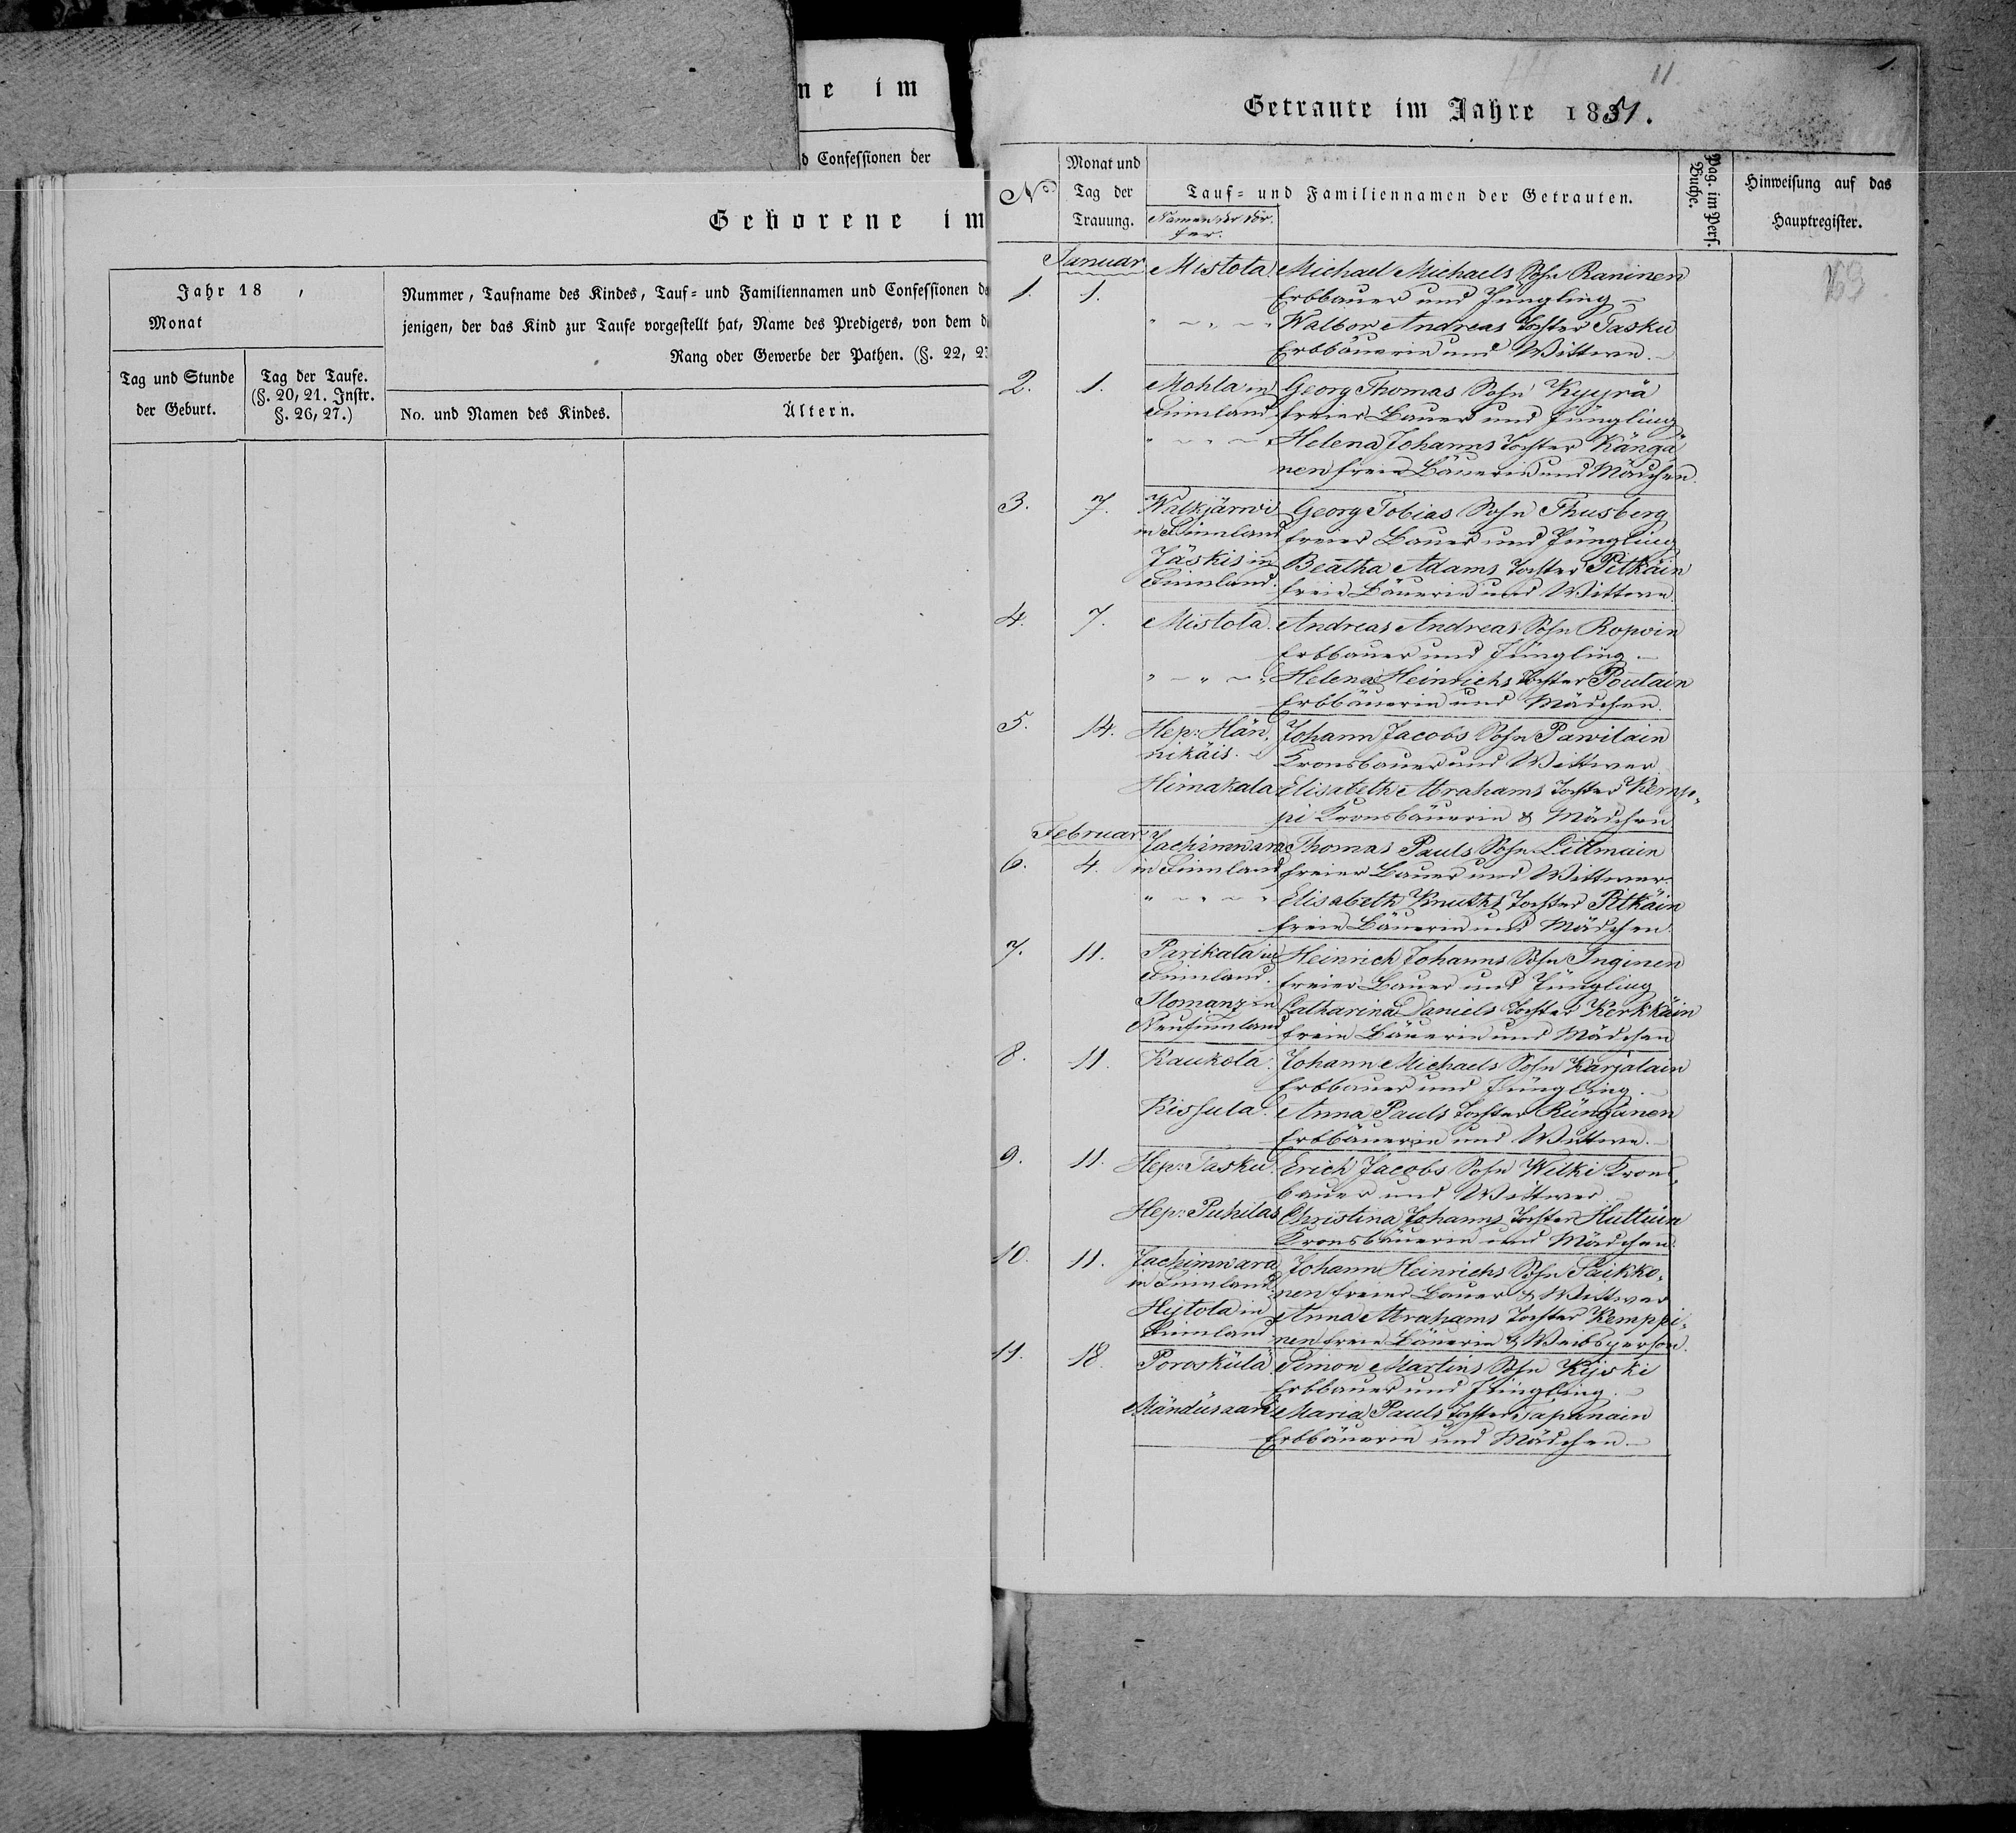 ne im
d Confessionen der
Geborene im
Jahr 18 ,
Monat
Tag und Stunde
der Geburt.
Tag der Taufe.
(§. 20, 21. Instr.
§. 26, 27.)
Nummer, Taufname des Kindes, Tauf- und Familiennamen und Confessionen de
jenigen, der das Kind zur Taufe vorgestellt hat, Name des Predigers, von dem d
Rang oder Gewerbe der Pathen. (§. 22, 2
No. und Namen des Kindes.
Ältern.
11
1.
Getraute im Jahre 1851.
No
Monat und
Tag der
Trauung.
Tauf- und Familiennamen der Getrauten.
Namen der Dör-
fer.
Pag. im Pers.
Buche.
Hinweisung auf das
Hauptregister.
Januar Mistola Michael Michaels Sohn Raninen
1. 1. Erbbauer und Jüngling
" " " Walbor Andreas Tochter Tasku
Erbbäuerin und Wittwe.
2. 1. Mohla in Georg Thomas Sohn Kyyrä
Finnland freier Bauer und Jüngling
" " " Helena Johanns Tochter Kängä
nen freie Bäuerin und Mädchen.
3. 7. Walkjärwi Georg Tobias Sohn Thusberg
in Finnland freier Bauer und Jüngling
Jäskis in Beatha Adams Tochter Pitkäin
Finnland. freie Bäuerin und Wittwe.
4. 7. Mistola. Andreas Andreas Sohn Ropoin
Erbbauer und Jüngling.
" " " Helena Heinrichs Tochter Poutain
Erbbäuerin und Mädchen.
5. 14. Hep: Hän. Johann Jacobs Sohn Pawilain
nikäis. Kronsbauer und Wittwer
Himakala Elisabeth Abrahams Tochter Kemp-
pi Kronsbäuerin & Mädchen
Februar Jachimwara Thomas Pauls Sohn Littmain
6. 4. in Finnland freier Bauer und Wittwer.
" " " Elisabeth Knuths Tochter Pitkäin
freie Bäuerin und Mädchen.
7. 11. Parikala in Heinrich Johanns Sohn Inginen
Finnland. freier Bauer und Jüngling
Ilomanz in Catharina Daniels Tochter Kerkkäin
Neufinnland freie Bäuerin und Mädchen
8. 11. Kaukola. Johann Michaels Sohn Karjalain
Erbbauer und Jüngling.
Kissula. Anna Pauls Tochter Rüngänen
Erbbäuerin und Wittwe.
9. 11. Hep: Tasku. Erich Jacobs Sohn Wilki Krons-
bauer und Wittwer
Hep: Puhilas Christina Johanns Tochter Huttuin
Kronsbäuerin und Mädchen.
10. 11. Jachimwara Johann Heinrichs Sohn Paikko-
in Finnland. nen freier Bauer & Wittwer
Hytola in Anna Abrahams Tochter Kemppi-
Finnland nen freie Bäuerin & Weibsperson.
11. 18. Porosküla Simon Martins Sohn Kijski
Erbbauer und Jüngling.
Mändüsaari Maria Pauls Tochter Tapanain
Erbbäuerin und Mädchen.